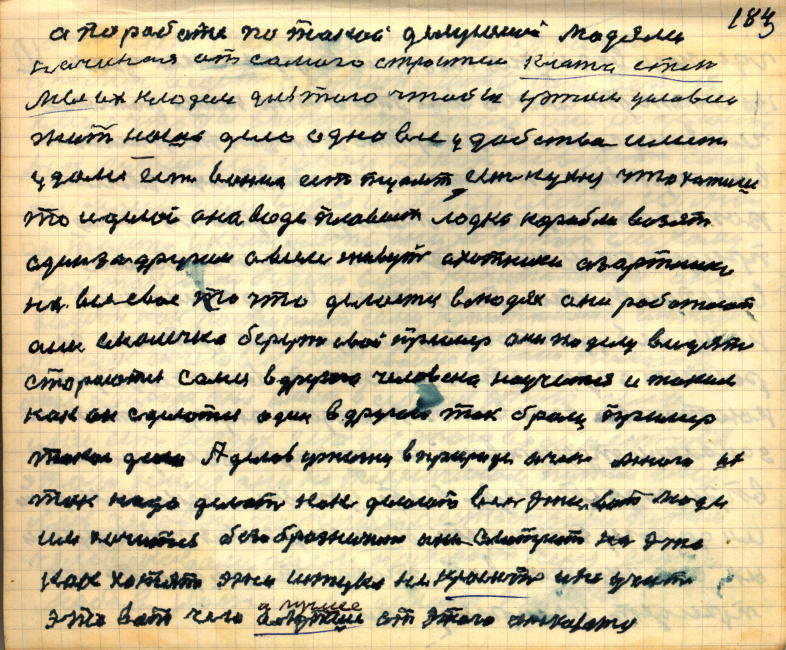 183
а поработе по такой делующей модели
начиная от самого строител клати стен
мы их кладем для того чтобы в этом условии
жить наше дело одно все удобства имеем
у доме есть вонна есть туалет есть кухня что хотише
то и делой она вода плавает лодка корабли возят
один за другим а в леси живут охотники азартники
на все свое то что делается в людях они работают
они сколичко берут свой пример они по делу видят
стороются сами в другого человека научится и таким
как он сделатся один в другого так брац пример
такое дело А делов у жизни в природе очень много их
так надо делать как делают все эти вот люди
им хочится безобразничат они смотрят на это
как хотят эти штуки не кроется и не учит
это вот чего а лучше от этого
а лучше